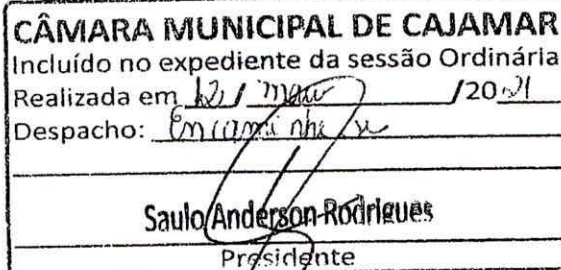 CÂMARA MUNICIPAL DE CAJAMAR
Incluído no expediente da sessão Ordinária
Realizada em 12 / maio /2021
Despacho: Encaminhe se
Saulo Anderson Rodrigues
Presidente